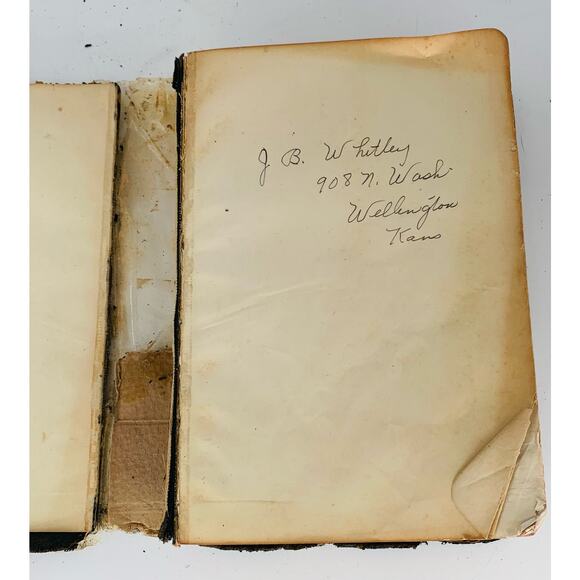 J B. Whitley
908 N. Wash.
Wellington
Kans